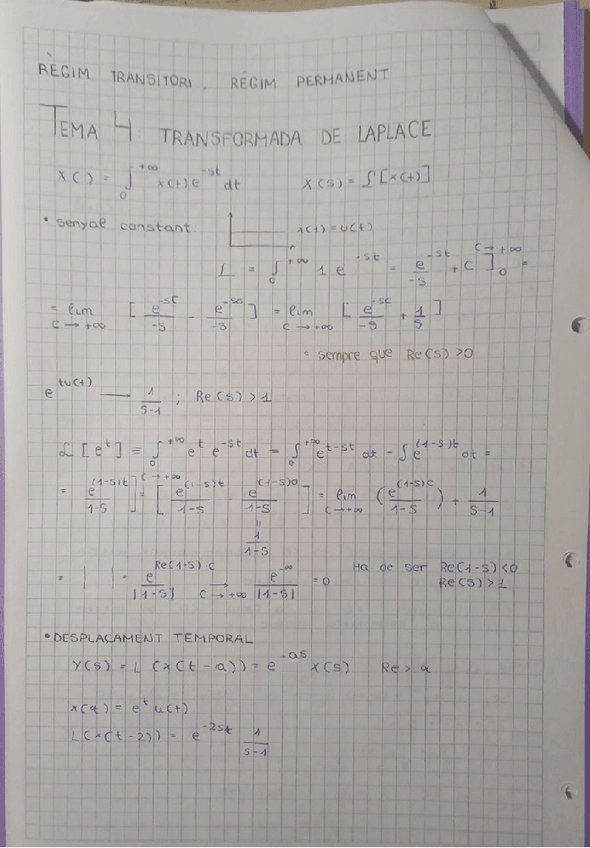 RÈGIM TRANSITORI, RÈGIM PERMANENT
TEMA 4 TRANSFORMADA DE LAPLACE
X( ) = ∫₀^{+∞} x(t) e^{-st} dt X(s) = ℒ[x(t)]
• senyal constant: x(t) = u(t)
L = ∫₀^{+∞} 1 e^{-st} = e^{-st}/-s + C ]₀^{C→+∞} =
= lim_{C→+∞} [ e^{-sC}/-s - e^{-s0}/-s ] = lim_{C→+∞} [ e^{-sC}/-s + 1/s ]
= sempre que Re(s) > 0
e^{tu(t)} → 1/s-1 ; Re(s) > 1
ℒ[e^t] = ∫₀^{+∞} e^t e^{-st} dt = ∫₀^{+∞} e^{t-st} dt = ∫ e^{(1-s)t} dt =
= e^{(1-s)t}/1-s ]₀^{C→+∞} = [ e^{(1-s)t}/1-s - e^{(1-s)0}/1-s ] = lim_{C→+∞} ( e^{(1-s)C}/1-s ) + 1/s-1
=
1/1-s
= | | = e^{Re(1-s) C}/|1-s| →_{C→+∞} e^{-∞}/|1-s| = 0 Ha de ser Re(1-s) < 0
Re(s) > 1
• DESPLAÇAMENT TEMPORAL
Y(s) = L(x(t-a)) = e^{-as} X(s) Re > α
x(t) = e^t u(t)
L(x(t-2)) = e^{-2st} 1/s-1